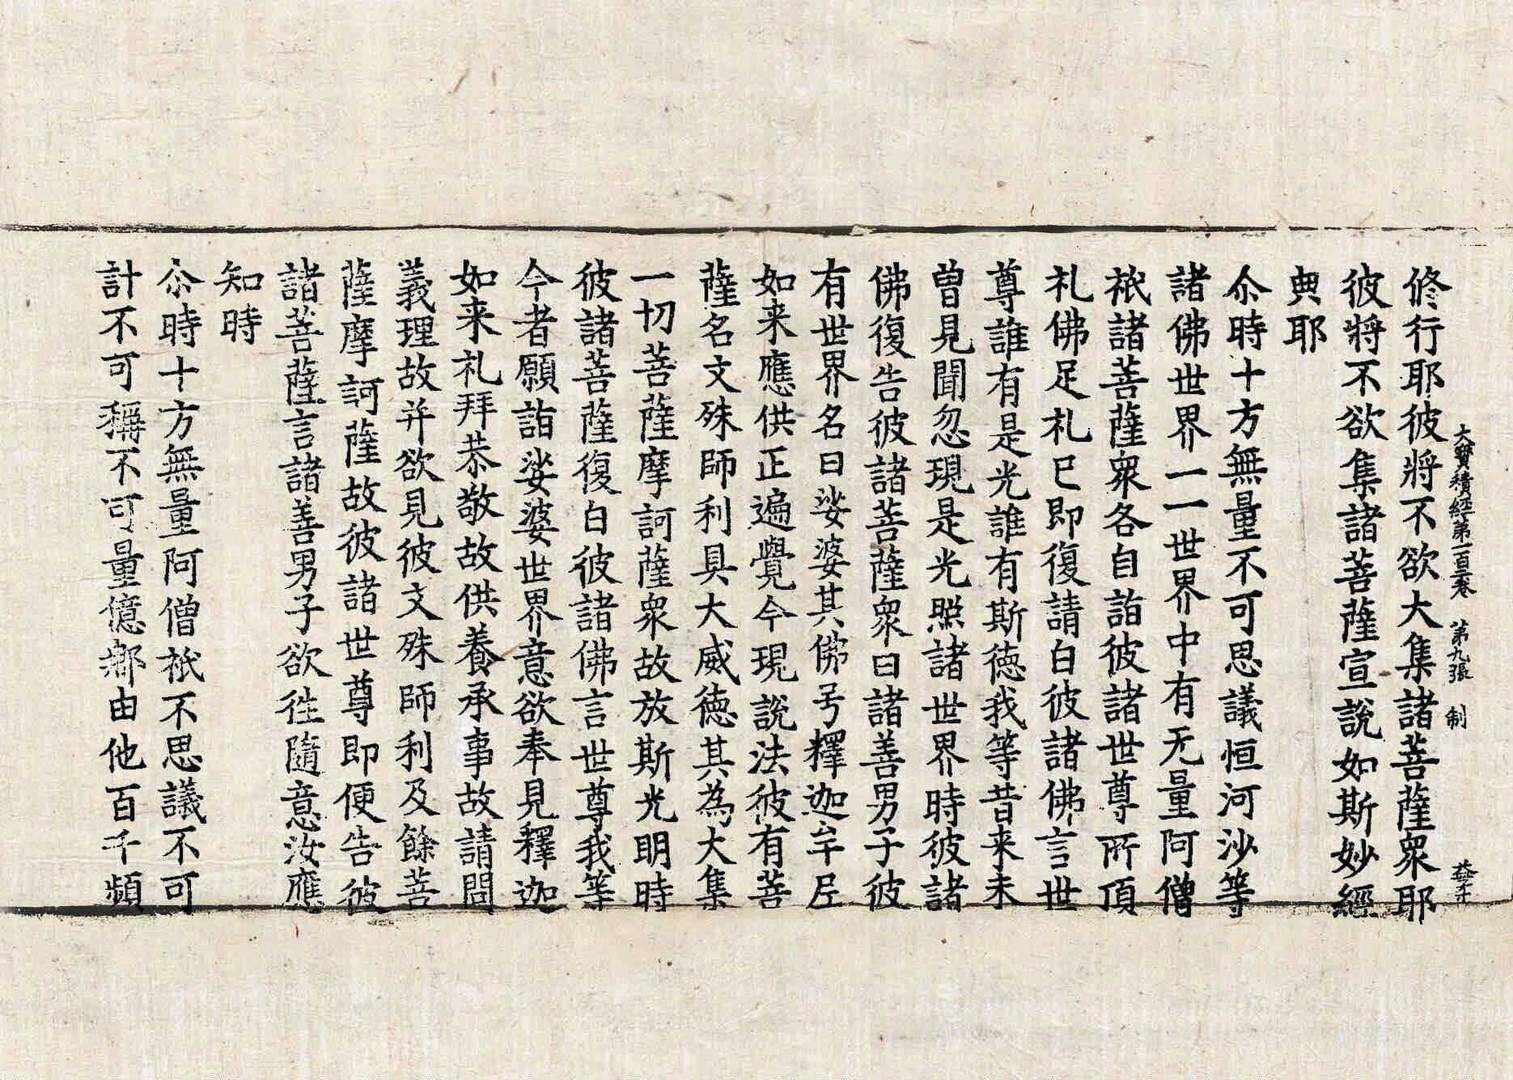 大寶積經第一百三卷 第九張 制
修行耶彼將不欲大集諸菩薩眾耶
彼將不欲集諸菩薩宣說如斯妙經
典耶
尒時十方無量不可思議恒河沙等
諸佛世界一一世界中有无量阿僧
祇諸菩薩眾各自詣彼諸世尊所頂
礼佛足礼已即復請白彼諸佛言世
尊誰有是光誰有斯德我等昔来未
曾見聞忽現是光照諸世界時彼諸
佛復告彼諸菩薩眾曰諸善男子彼
有世界名曰娑婆其佛号釋迦牟尼
如来應供正遍覺今現說法彼有菩
薩名文殊師利具大威德其為大集
一切菩薩摩訶薩眾故放斯光明時
彼諸菩薩復白彼諸佛言世尊我等
今者願詣娑婆世界意欲奉見釋迦
如来礼拜恭敬故供養承事故請問
義理故并欲見彼文殊師利及餘菩
薩摩訶薩故彼諸世尊即便告彼
諸菩薩言諸善男子欲往隨意汝應
知時
尒時十方無量阿僧祇不思議不可
計不可稱不可量億那由他百千頻